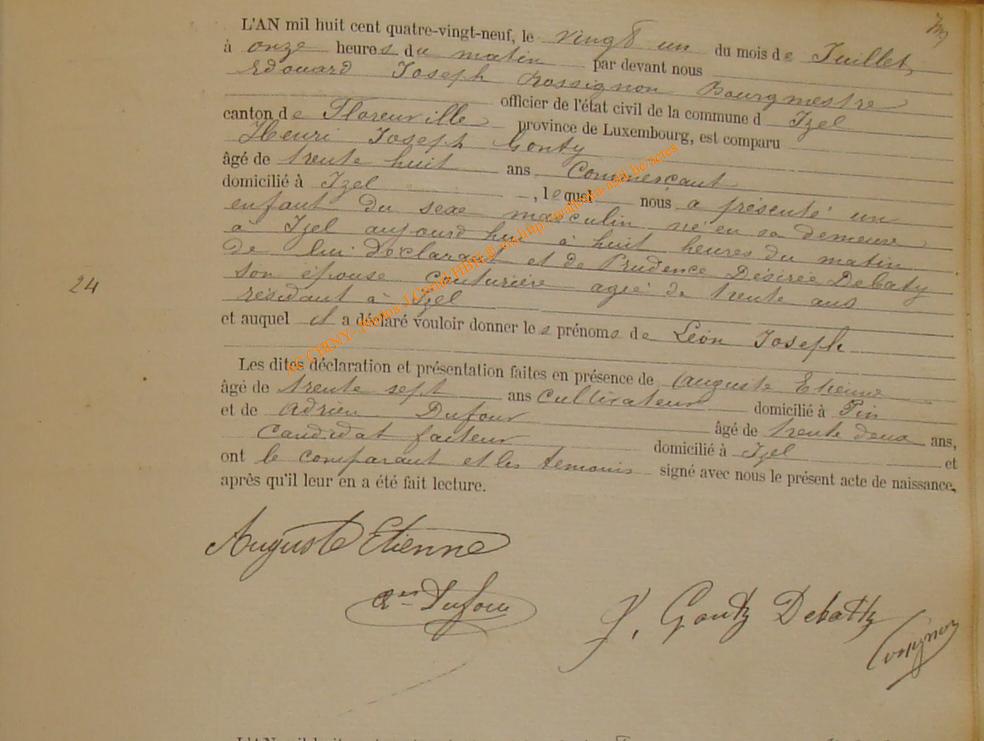 L'AN mil huit cent quatre-vingt-neuf, le vingt un du mois de Juillet,
à onze heures du matin par devant nous
Edouard Joseph Rossignon Bourgmestre
officier de l'état civil de la commune d Izel
canton de Florenville province de Luxembourg, est comparu
Henri Joseph Gouty
âgé de trente huit ans Commerçant
domicilié à Izel, lequel nous a présenté un
enfant du sexe masculin né en sa demeure
à Izel aujourd'hui à huit heures du matin
de lui déclarant et de Prudence Désirée Debaty
son épouse Couturière agée de trente ans
résidant à Izel
24
et auquel il a déclaré vouloir donner les prénoms de Léon Joseph
Les dites déclaration et présentation faites en présence de Auguste Etienne
âgé de trente sept ans Cultivateur domicilié à Pin
et de Adrien Dufour âgé de trente deux ans,
Candidat facteur domicilié à Izel et
ont le comparant et les temoins signé avec nous le présent acte de naissance,
après qu'il leur en a été fait lecture.
Auguste Etienne
Dufour
J. Gouty Debatty
Rossignon